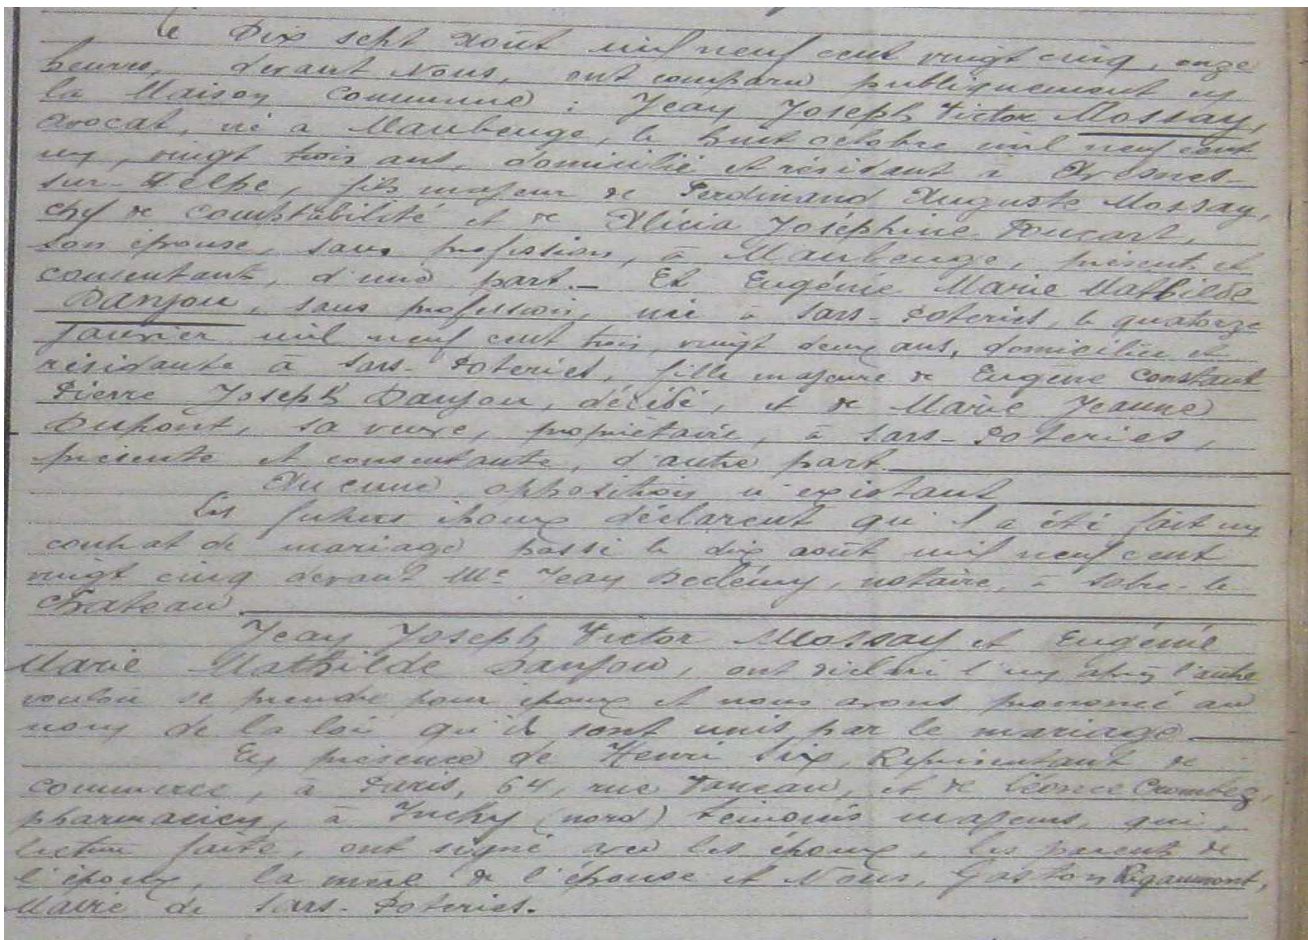 Le Dix sept Août mil neuf cent vingt cinq, onze
heures, devant Nous, ont comparu publiquement en
la Maison Commune : Jean Joseph Victor Mossay,
avocat, né à Maubeuge, le huit octobre mil neuf cent
un, vingt trois ans, domicilié et résidant à Avesnes-
sur-Helpe, fils majeur de Ferdinand Auguste Mossay,
chef de comptabilité et de Alicia Joséphine Foucart,
son épouse, sans profession, à Maubeuge, présents et
consentants, d'une part. – Et Eugénie Marie Mathilde
Danjou, sans profession, née à Sars-Poteries, le quatorze
Janvier mil neuf cent trois, vingt deux ans, domiciliée et
résidante à Sars-Poteries, fille majeure de Eugène Constant
Pierre Joseph Danjou, décédé, et de Marie Jeanne
Dupont, sa veuve, propriétaire, à Sars-Poteries,
présente et consentante, d'autre part.
Aucune opposition n'existant
Les futurs époux déclarent qu'il a été fait un
contrat de mariage passé le dix août mil neuf cent
vingt cinq devant Me Jean, notaire, à Solre-le
Chateau.
Jean Joseph Victor Mossay et Eugénie
Marie Mathilde Danjou, ont déclaré l'un après l'autre
vouloir se prendre pour époux et nous avons prononcé au
nom de la loi qu'ils sont unis par le mariage
En présence de Henri Six, Représentant de
commerce, à Paris, 64, rue, et de Léonce Crombez,
pharmacien, à Inchy (nord) témoins majeurs, qui,
lecture faite, ont signé avec les époux, les parents de
l'époux, la mère de l'épouse et Nous, Gaston Rigaumont,
Maire de Sars-Poteries.